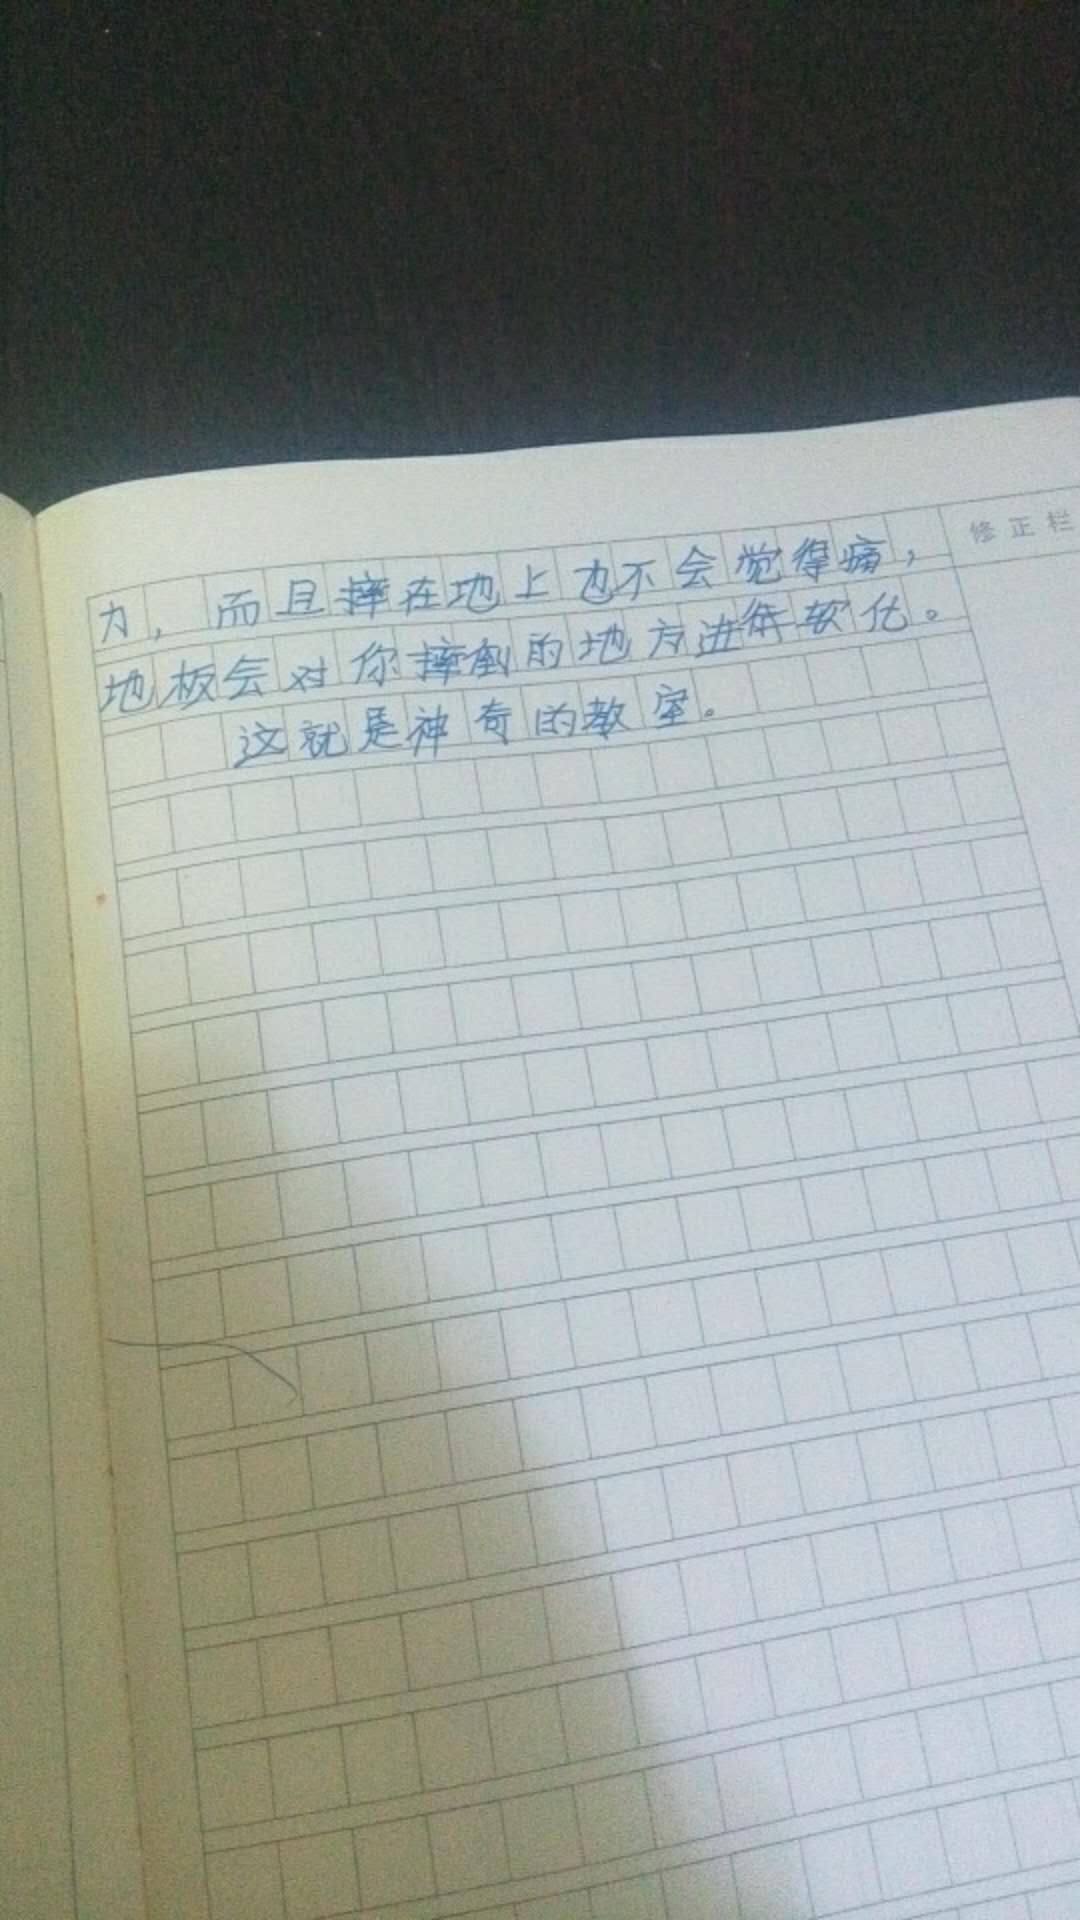 修正栏
力，而且摔在地上也不会觉得痛，
地板会对你摔倒的地方进行软化。
这就是神奇的教室。